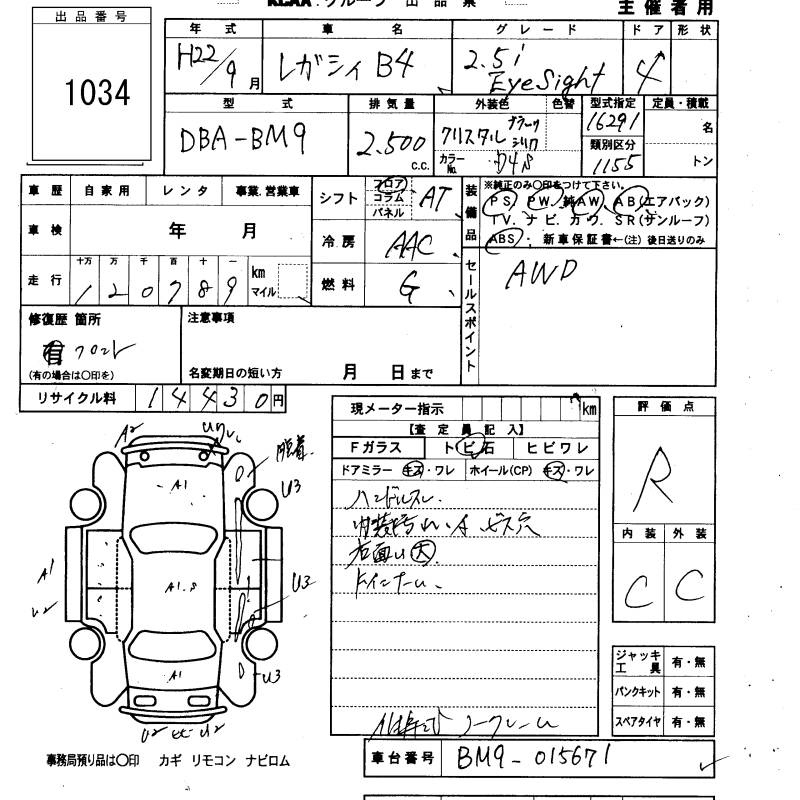 出品番号
1034
主催者用
年式 車名 グレード ドア 形状
H22/9月 レガシィB4 2.5i EyeSight 4
型式 排気量 外装色 色替 型式指定 定員・積載
DBA-BM9 2.500 c.c. クリスタル ブラック シリカ 16291 名
カラーNo. D4S 類別区分 1155 トン
車歴 自家用 レンタ 事業.営業車
車検 年 月
走行 十万 万 千 百 十 一 km マイル
120789
シフト フロア コラム パネル AT
冷房 AAC
燃料 G
装備品 ※純正のみ〇印をつけて下さい。
PS PW. 純AW. AB(エアバック)
TV. ナビ. カワ. SR(サンルーフ)
ABS ・ 新車保証書←(注) 後日送りのみ
セールスポイント
AWD
修復歴 箇所
有 フロント
(有の場合は〇印を)
注意事項
名変期日の短い方 月 日まで
リサイクル料 14430円
現メーター指示 km
【査定員記入】
Fガラス トビ石 ヒビワレ
ドアミラー キズ・ワレ ホイール(CP) キズ・ワレ
ハンドルスレ
内装汚れ・A ビス穴
右面U大
評価点
R
内装 外装
C C
ジャッキ工具 有・無
パンクキット 有・無
スペアタイヤ 有・無
A2
脱着
A1
U3
A1
U2
A1.S
U3
A1
U3
U2
事務局預り品は〇印 カギ リモコン ナビロム
車台番号 BM9-015671